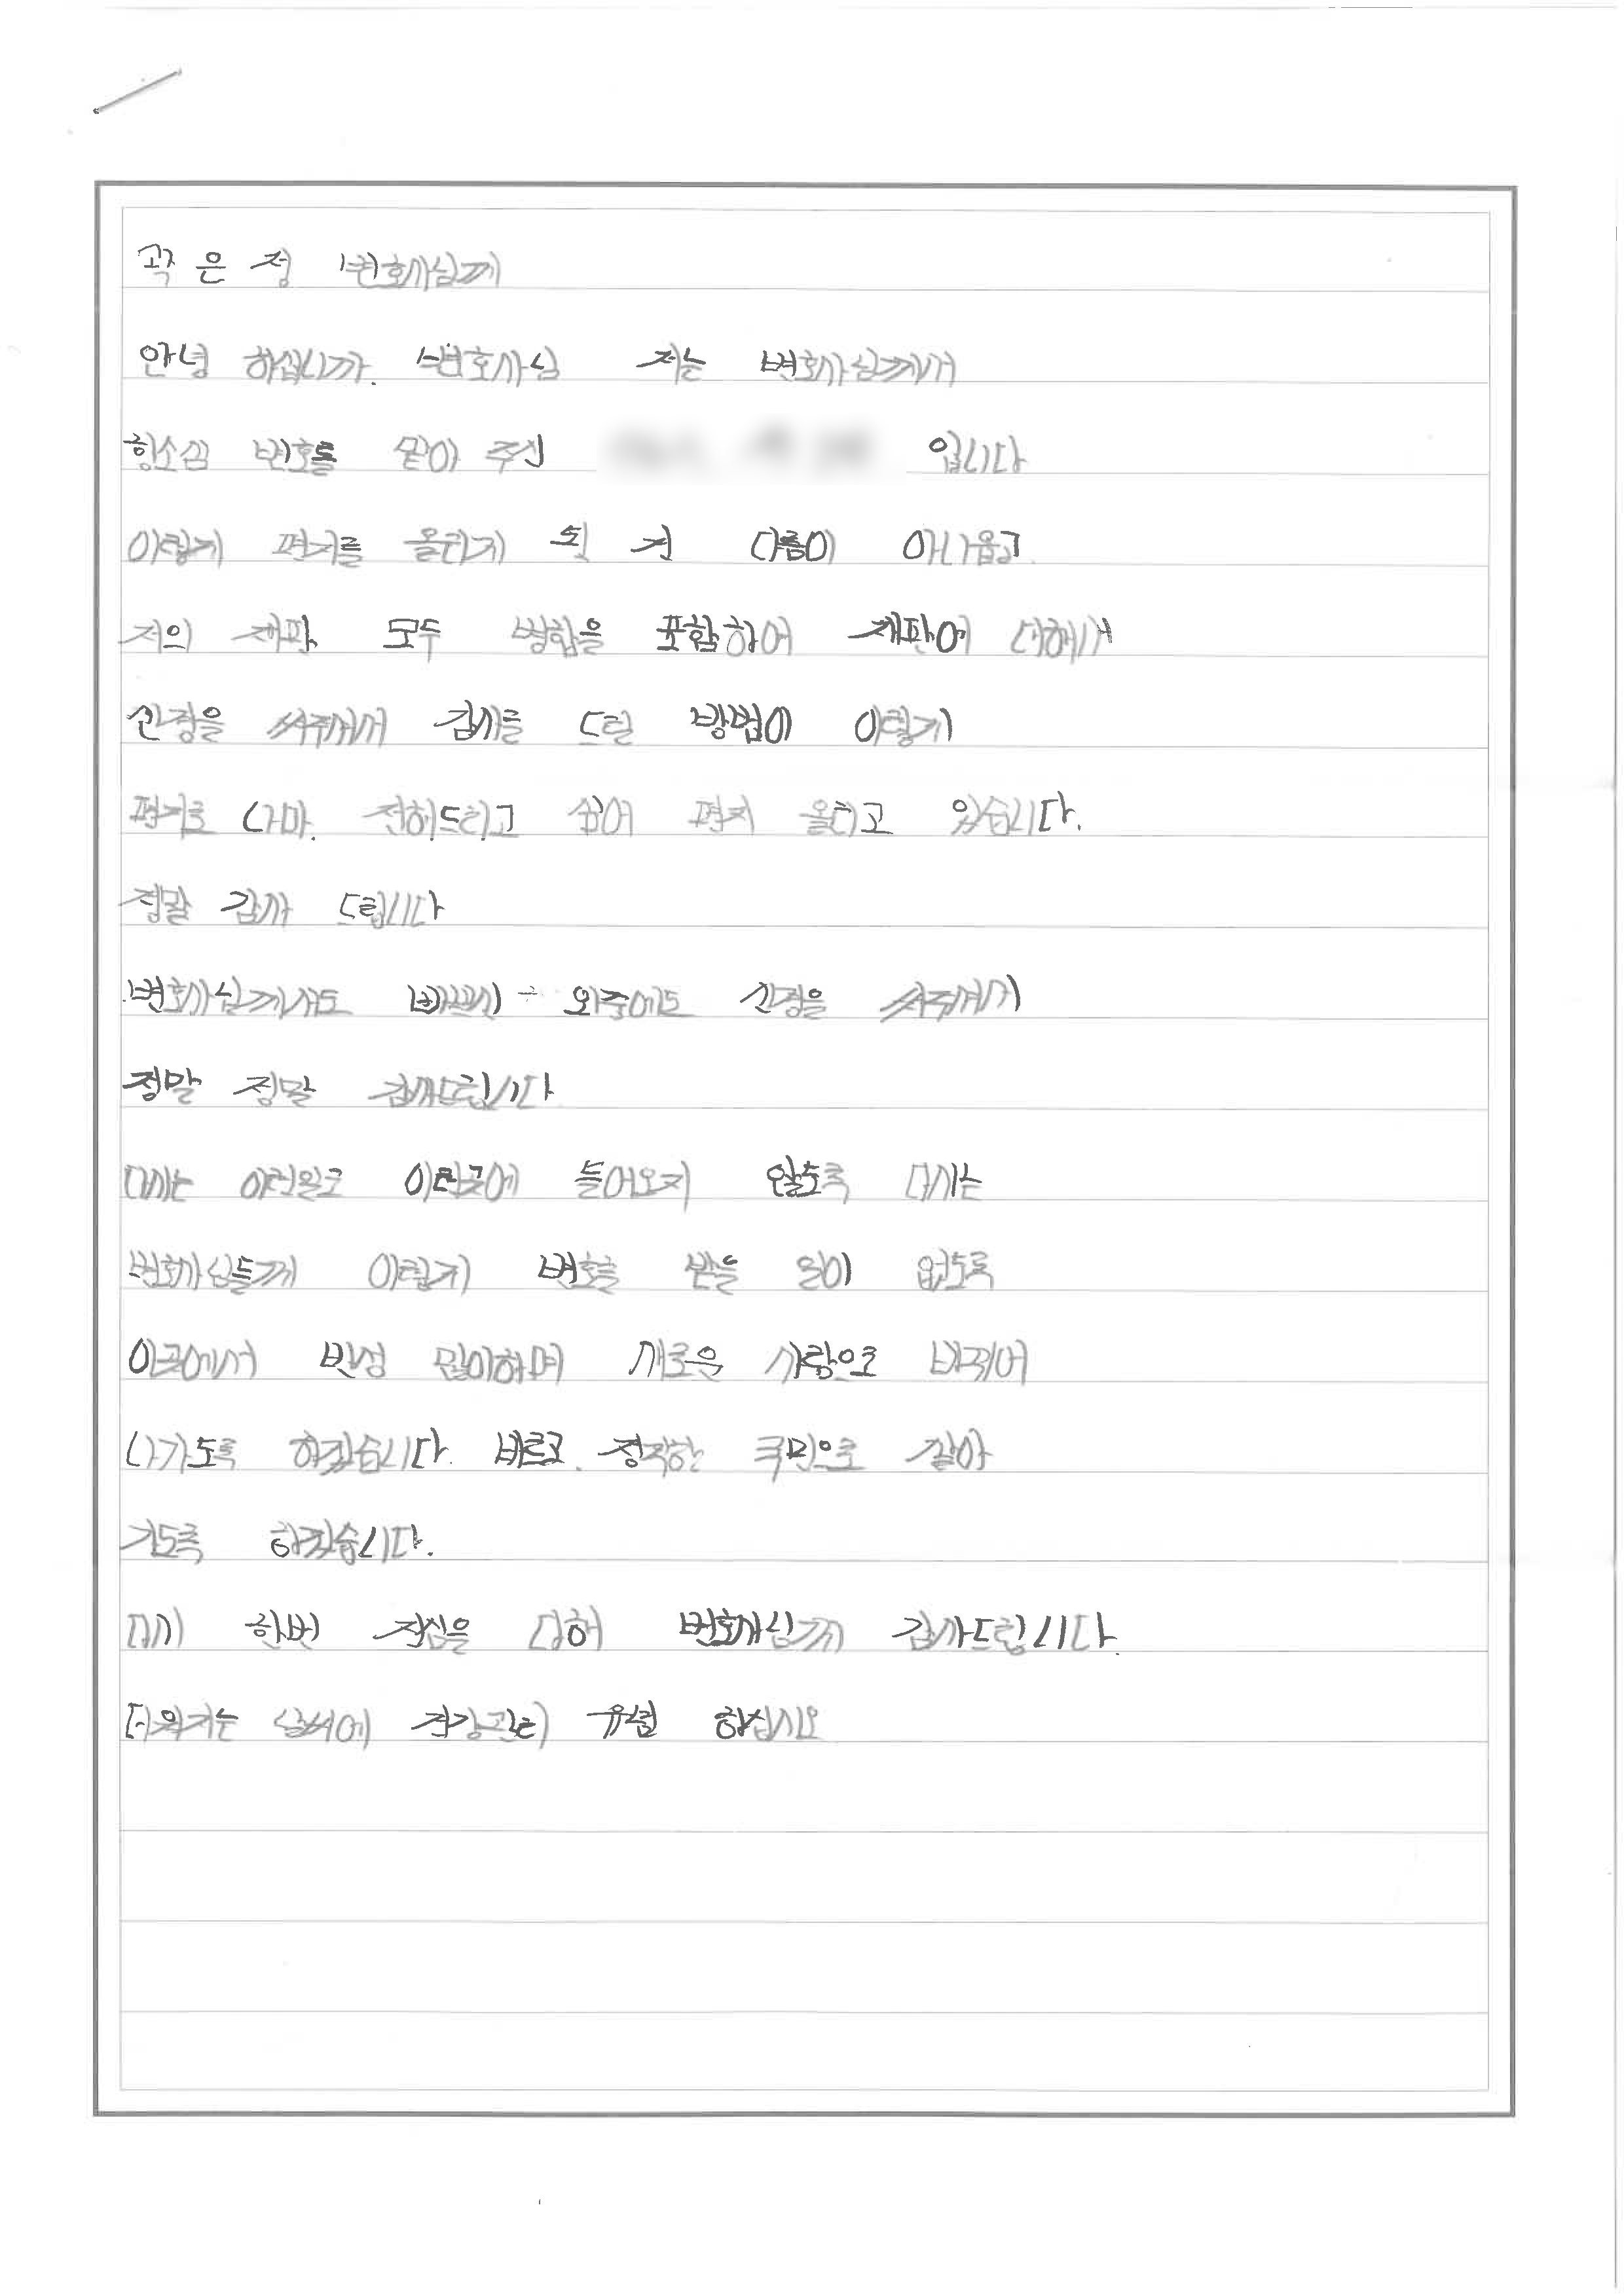 곽은정 변호사님께
안녕 하십니까. 변호사님 저는 변호사님께서
항소심 변호를 맡아 주신 입니다
이렇게 편지를 올리게 된 건 다름이 아니옵고
저의 재판 모두 병합을 포함하여 재판에 대해서
신경을 써주셔서 감사를 드릴 방법이 이렇게
편지로 나마. 전해드리고 싶어 편지 올리고 있습니다.
정말 감사 드립니다
변호사님께서도 바쁘신 와중에도 신경을 써주셔서
정말 정말 감사드립니다
다시는 이런일로 이런곳에 들어오지 않도록 다시는
변호사님들께 이렇게 변호를 받을 일이 없도록
이곳에서 반성 많이하며 새로운 사람으로 바뀌어
나가도록 하겠습니다. 바르고. 정직한 국민으로 살아
가도록 하겠습니다.
다시 한번 진심을 다해 변호사님께 감사드립니다.
더워지는 날씨에 건강관리 유념 하십시오